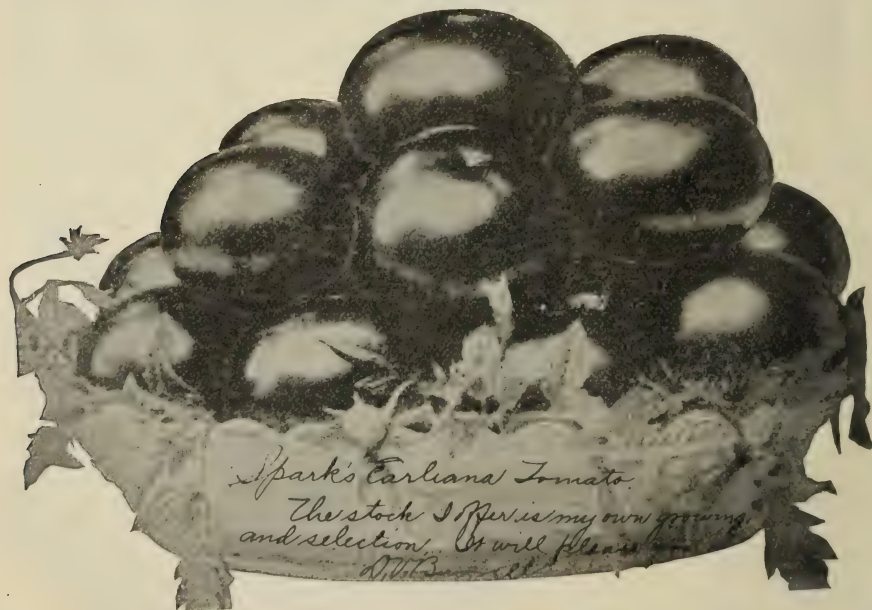 Spark's Earliana Tomato.
The stock I offer is my own growing
and selection. It will please
D.V.